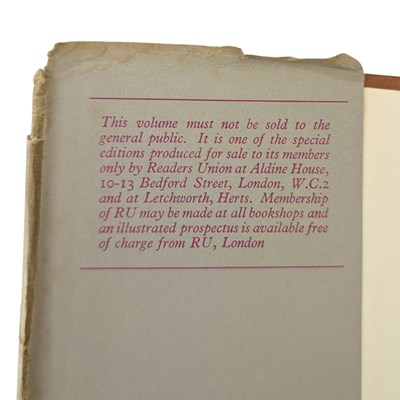 This volume must not be sold to the
general public. It is one of the special
editions produced for sale to its members
only by Readers Union at Aldine House,
10-13 Bedford Street, London, W.C.2
and at Letchworth, Herts. Membership
of RU may be made at all bookshops and
an illustrated prospectus is available free
of charge from RU, London